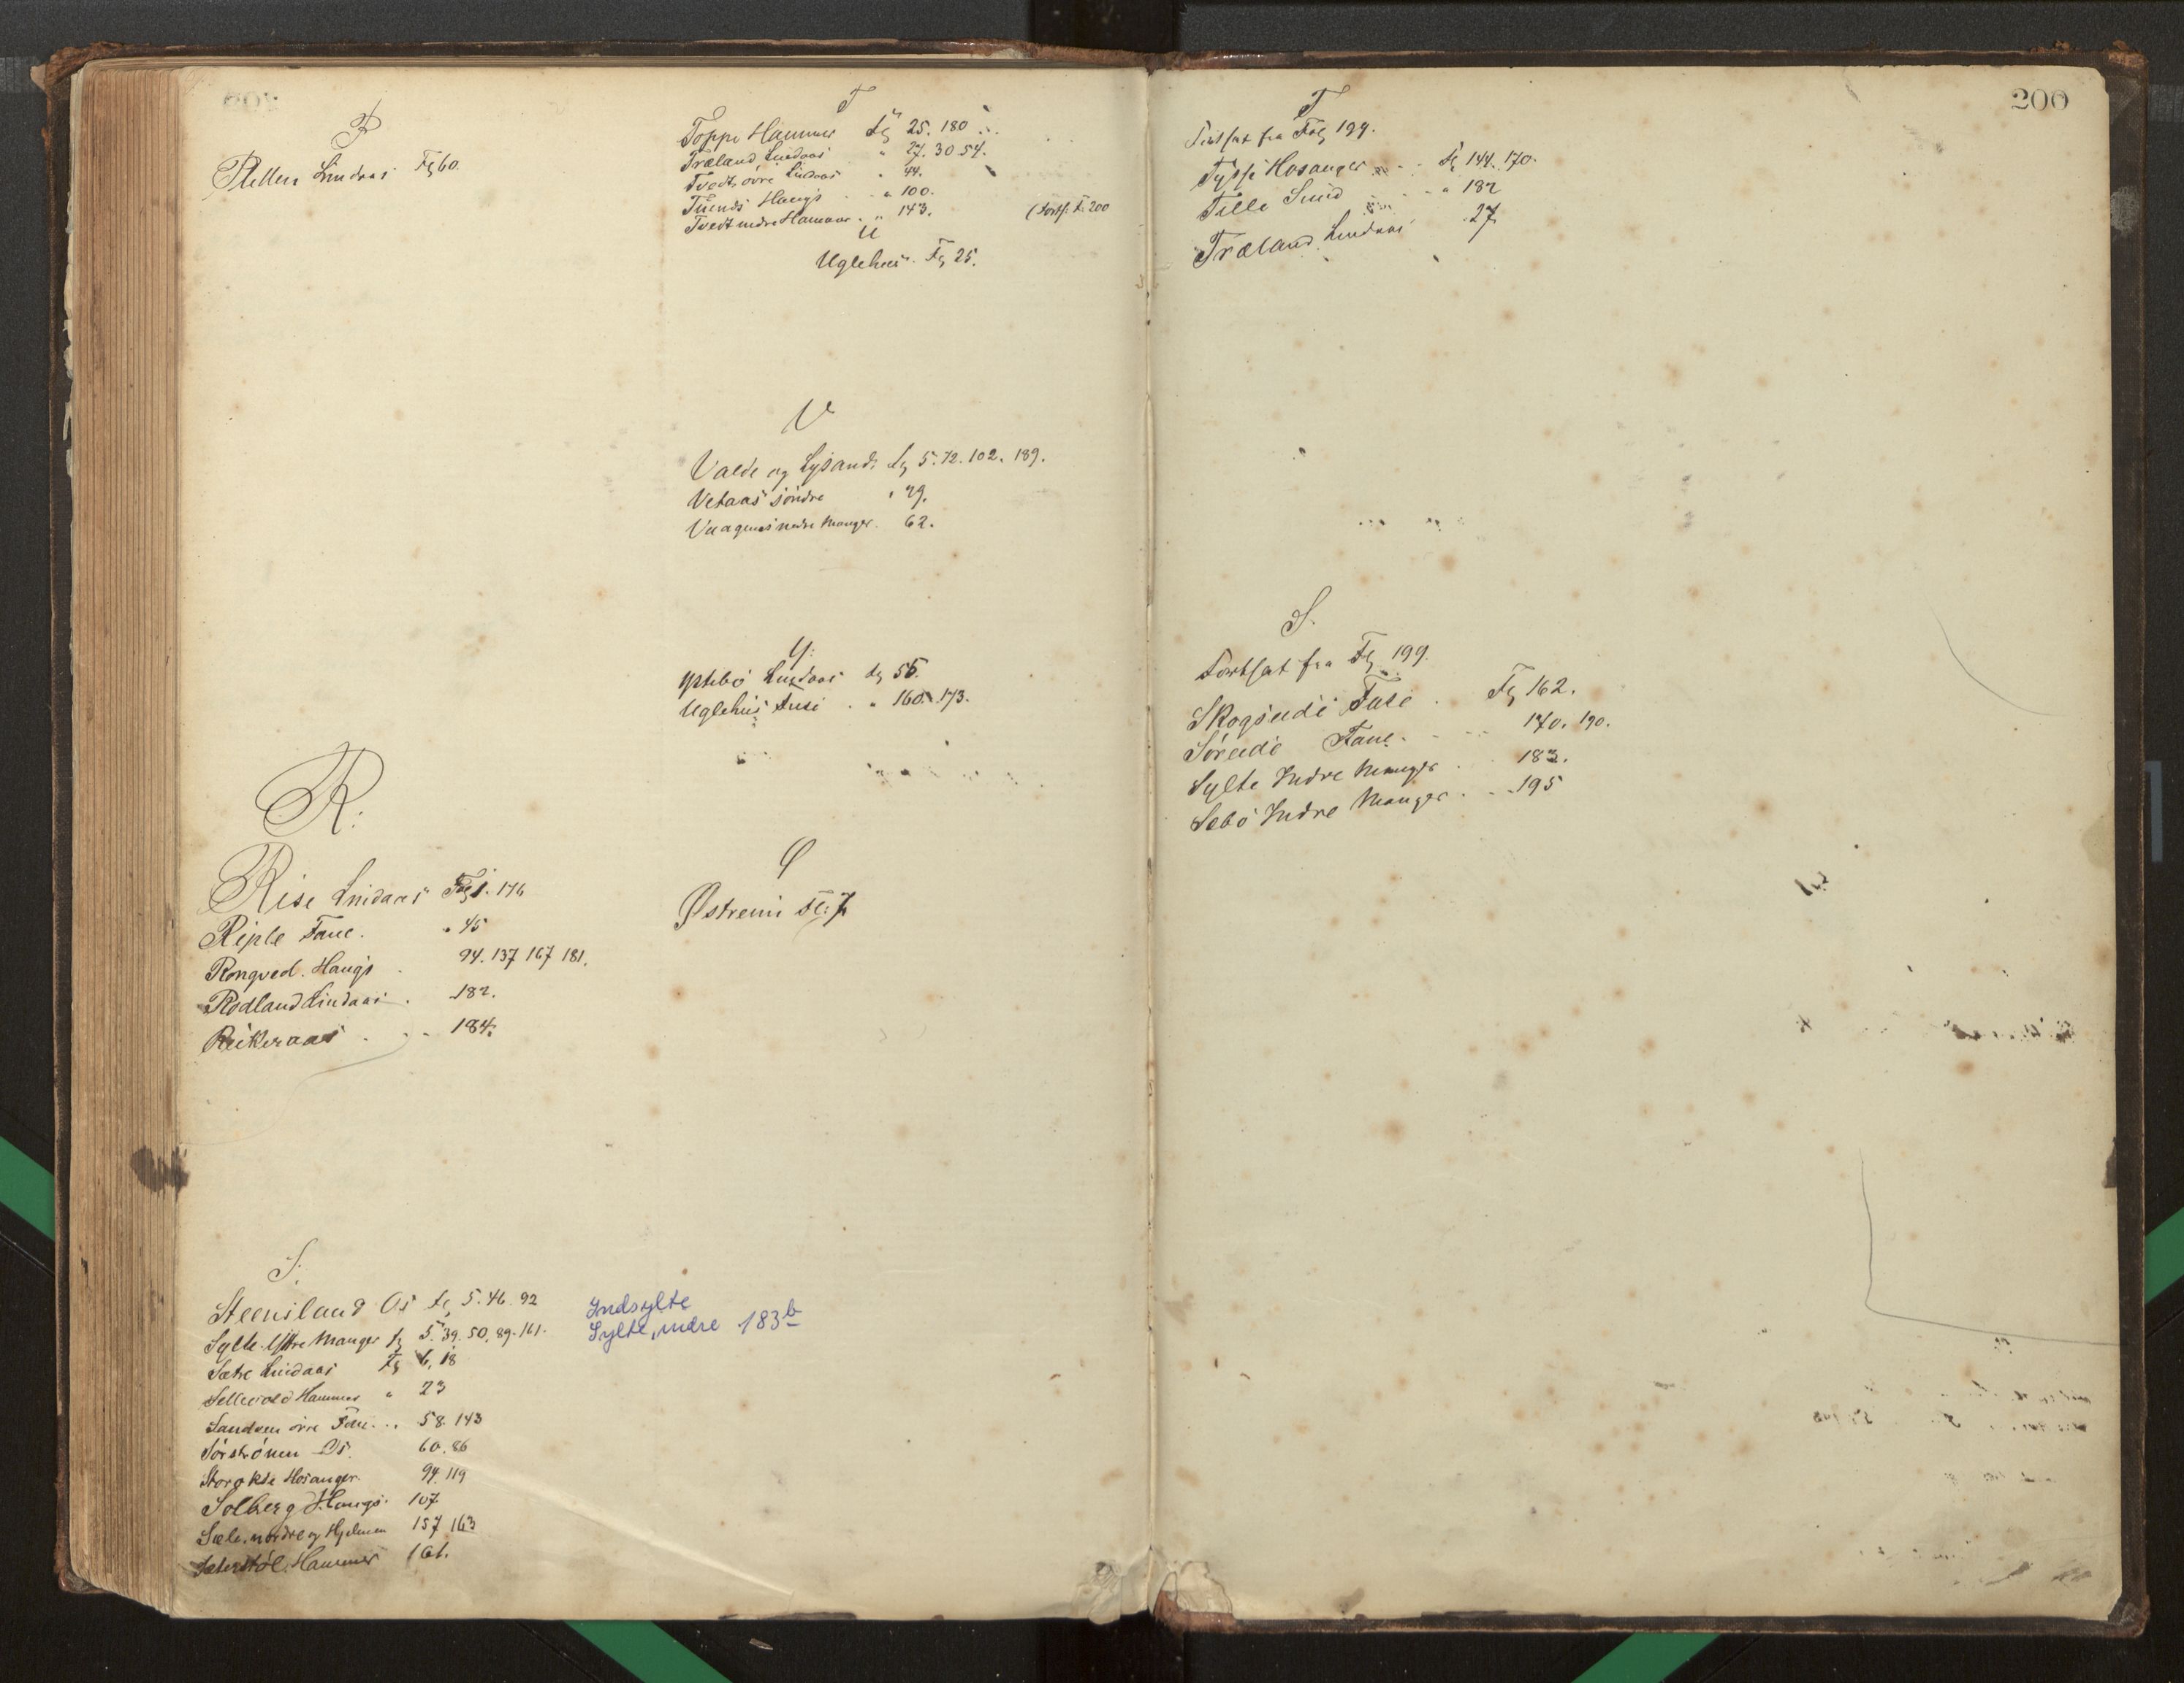 P
Pletten Lindaas Fg 60.
R:
Rise Lindaas Fog 1. 176
Riple Fane. " 45
Rongved. Haugs . 94. 137 167 181.
Rødland Lindaas . 182.
184.
S.
Steensland Os fg 5. 46. 92
Sylte Yttre Manger fg 5. 39. 50. 89. 161.
Sætre Lindaas Fg 6, 18
Sellevold Hammer " 23
Sandven øvre Fane . . 58. 143
Sørstrønen Os. 60. 86
Storokse Hosanger. 94. 119
Solberg Haugs. 107
Sæle, nordre og Hjelmen 157 163
Sæterstøl. Hammer 161.
Indsylte
Sylte, indre 183b
T
Toppe Hammer fg 25. 180
Træland Lindaas " 27. 30. 54.
Tvedt, øvre Lindaas " 44.
Haugs " 100.
Tvedt nedre Hammer . " 143. (Forts: F. 200
U
Uglehus. Fg 25.
V
Valde og Lysand: fg 5. 72. 102. 189.
Vetaas søndre " 29.
Vaagenes nedre Manger. 62.
Y:
Yttebø Lindaas fg 55.
Uglehus Fuse . " 160. 173.
Ø
Østrem Fl: 7.
200
T
Fortsat fra Fog 199.
Tysse Hosanger . . . Fg 144. 170.
Telle Sund - - " 182
Træland. Lindaas . 27
S.
Fortsat fra Fg 199.
Skogseide Fuse . Fg 162.
Søreide Fane. - - 170. 190.
Sylte Indre Manger . 183.
Sæbø Indre Manger . . 195